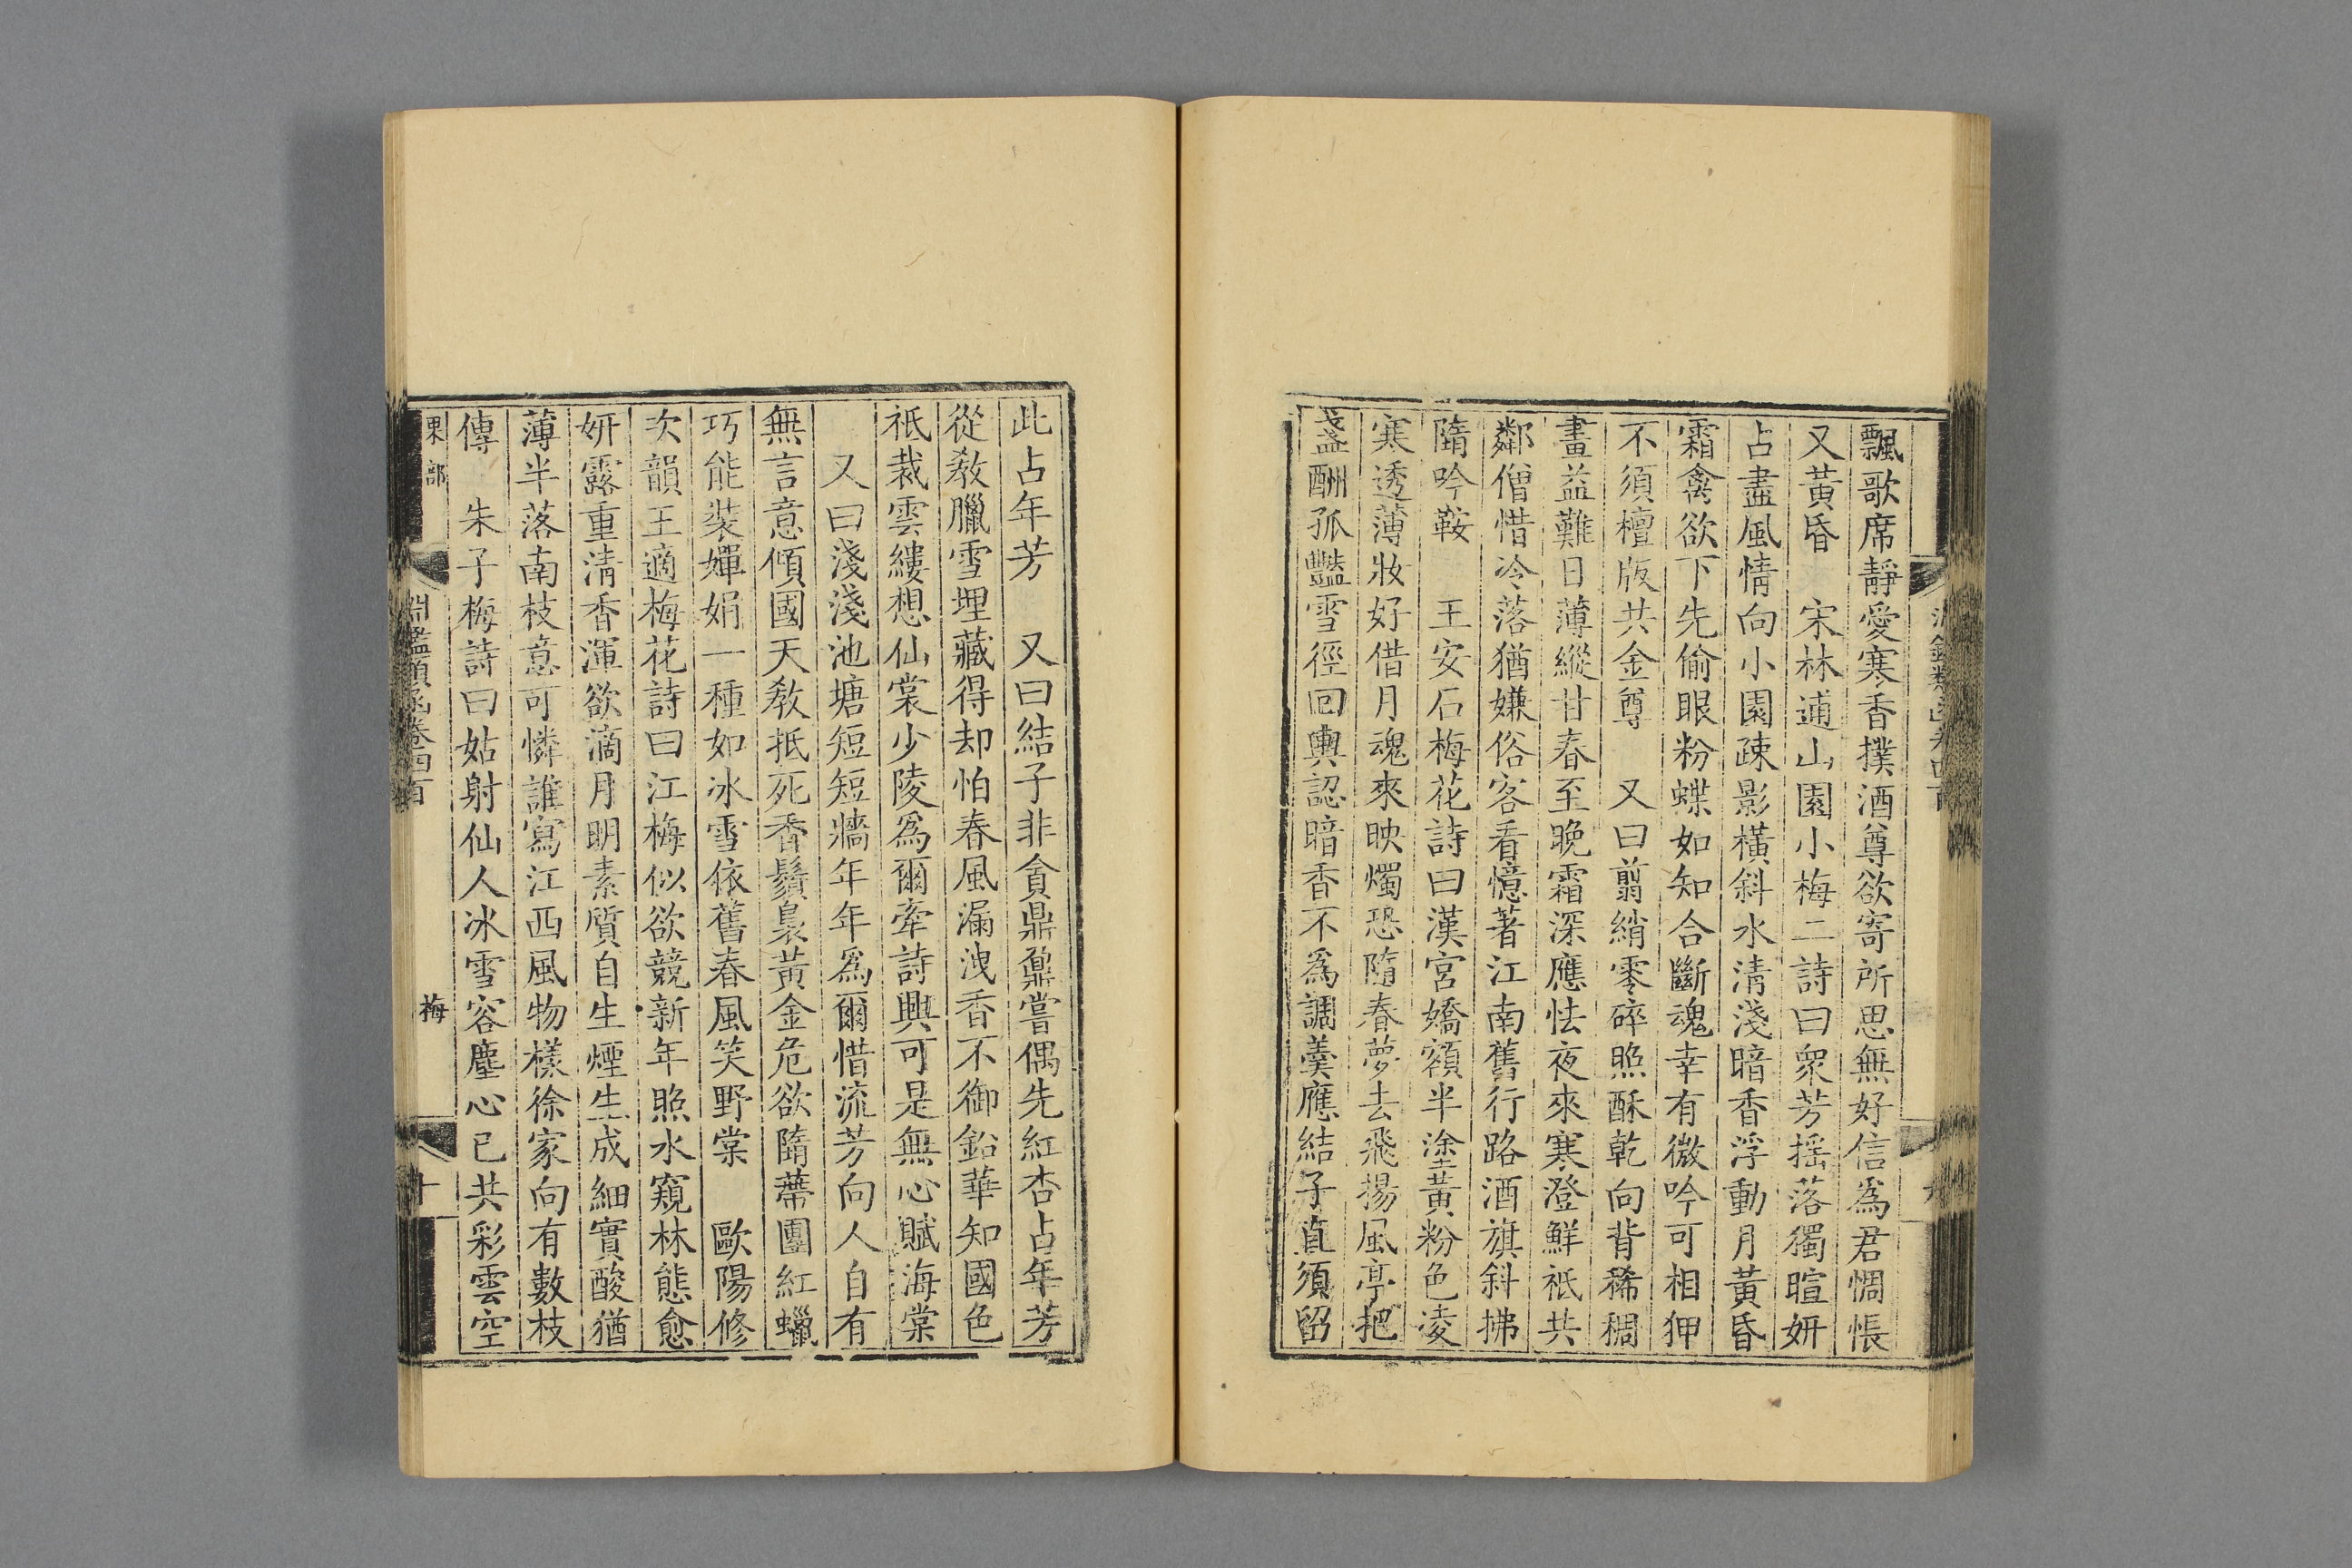 飄歌席靜愛寒香撲酒尊欲寄所思無好信爲君惆悵
又黃昏　宋林逋山園小梅二詩曰衆芳摇落獨暄妍
占盡風情向小園疎影橫斜水清淺暗香浮動月黃昏
霜禽欲下先偷眼粉蝶如知合斷魂幸有微吟可相狎
不須檀版共金尊　又曰翦綃零碎㸃酥乾向背稀稠
畫益難日薄縱甘春至晚霜深應怯夜來寒澄鮮祇共
鄰僧惜冷落猶嫌俗客看憶著江南舊行路酒旗斜拂
隋吟鞍　王安石梅花詩曰漢宮嬌額半塗黃粉色凌
寒透薄妝好借月魂來映燭恐隨春夢去飛揚風亭把
盞酬孤豔雪徑回輿認暗香不爲調羹應結子直須留
此占年芳　又曰結子非貪鼎鼐嘗偶先紅杏占年芳
從教臘雪埋藏得却怕春風漏洩香不御鉛華知國色
祗裁雲縷想仙裳少陵爲爾牽詩興可是無心賦海棠
又曰淺淺池塘短短牆年年爲爾惜流芳向人自有
無言意傾國天教抵死香鬚裊黃金危欲隋蔕團紅蠟
巧能裝嬋娟一種如冰雪依舊春風笑野棠　歐陽修
次韻王適梅花詩曰江梅似欲競新年照水窺林態愈
妍露重清香渾欲滴月明素質自生煙生成細實酸猶
薄半落南枝意可憐誰寫江西風物樣徐家向有數枝
傳　朱子梅詩曰姑射仙人冰雪容塵心已共彩雲空
果部
淵鑑類函卷四百
梅
十